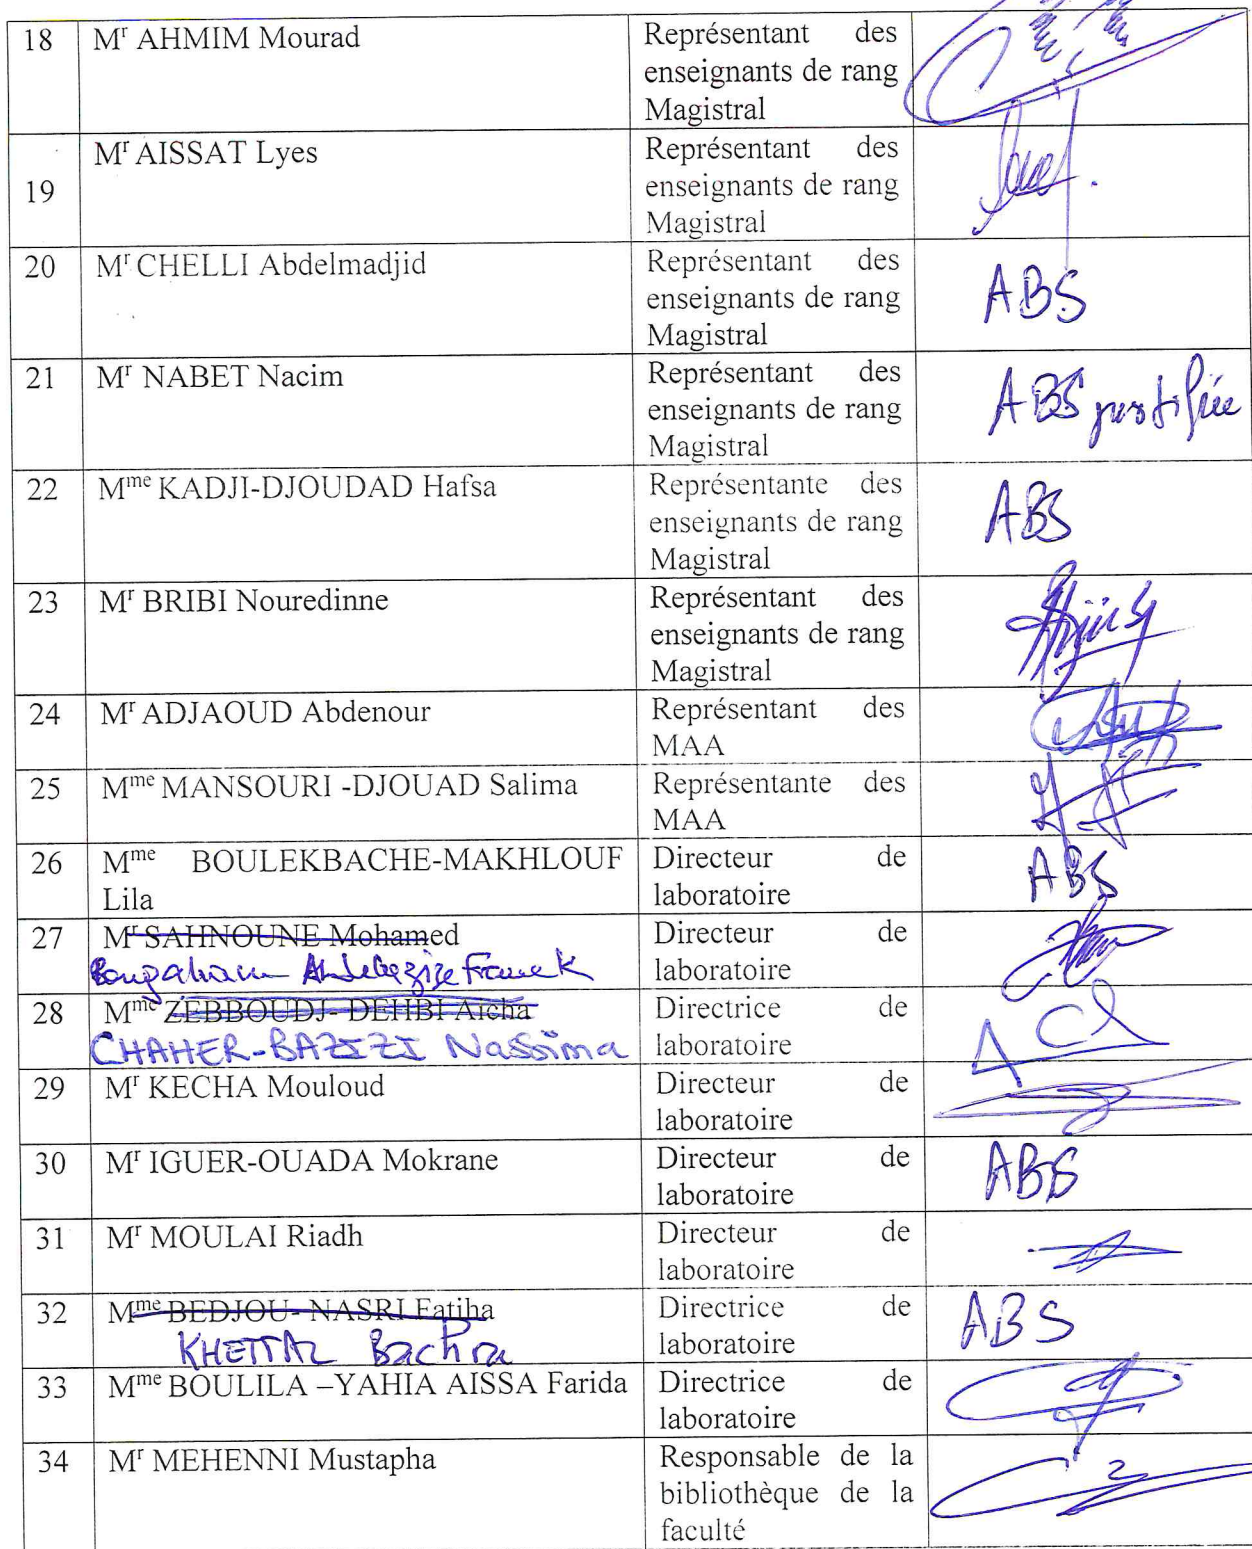 18 Mʳ AHMIM Mourad Représentant des
enseignants de rang
Magistral
Mʳ AISSAT Lyes Représentant des
19 enseignants de rang
Magistral
20 Mʳ CHELLI Abdelmadjid Représentant des
enseignants de rang ABS
Magistral
21 Mʳ NABET Nacim Représentant des
enseignants de rang ABS justifiée
Magistral
22 Mᵐᵉ KADJI-DJOUDAD Hafsa Représentante des
enseignants de rang ABS
Magistral
23 Mʳ BRIBI Nouredinne Représentant des
enseignants de rang
Magistral
24 Mʳ ADJAOUD Abdenour Représentant des
MAA
25 Mᵐᵉ MANSOURI -DJOUAD Salima Représentante des
MAA
26 Mᵐᵉ BOULEKBACHE-MAKHLOUF Directeur de ABS
Lila laboratoire
27 Mʳ SAHNOUNE Mohamed Directeur de
laboratoire
28 Mᵐᵉ ZEBBOUDJ- DEHBI Aicha Directrice de
CHAHER-BAZIZI Nassima laboratoire
29 Mʳ KECHA Mouloud Directeur de
laboratoire
30 Mʳ IGUER-OUADA Mokrane Directeur de ABS
laboratoire
31 Mʳ MOULAI Riadh Directeur de
laboratoire
32 Mᵐᵉ BEDJOU- NASRI Fatiha Directrice de ABS
KHETTAL Bachra laboratoire
33 Mᵐᵉ BOULILA –YAHIA AISSA Farida Directrice de
laboratoire
34 Mʳ MEHENNI Mustapha Responsable de la
bibliothèque de la
faculté